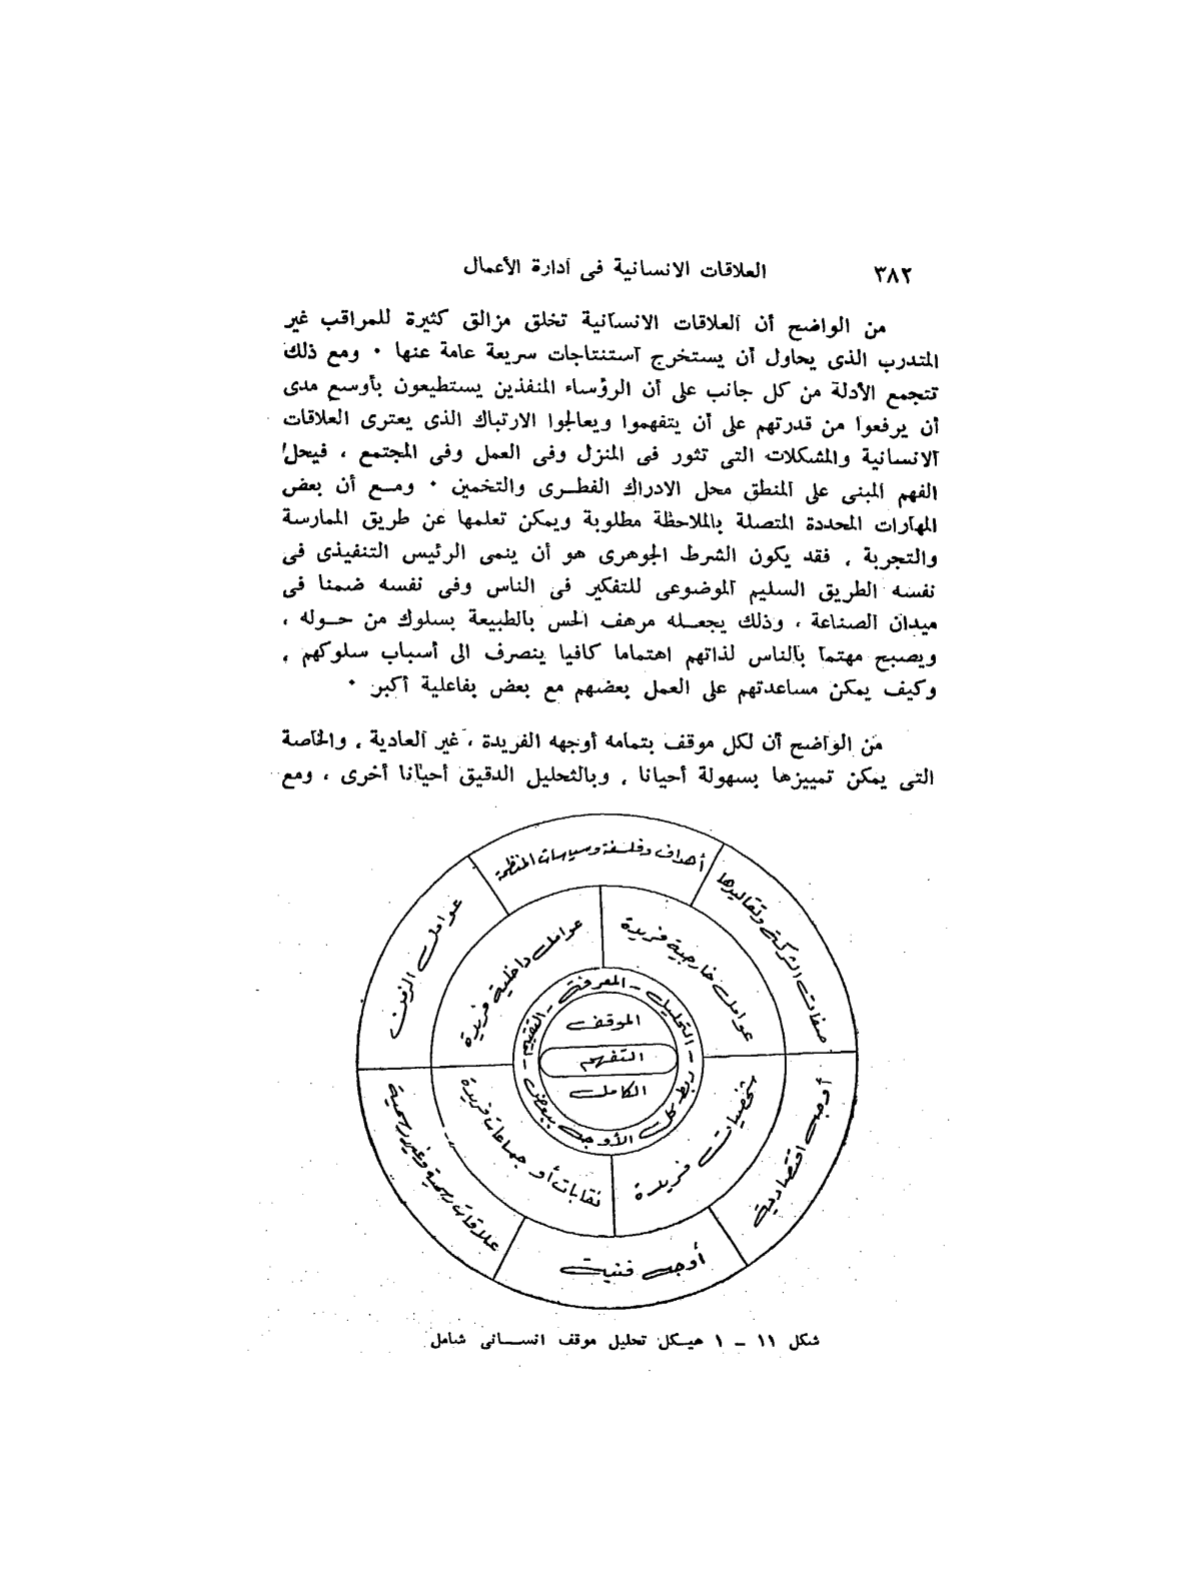 ٣٨٢
العلاقات الانسانية فى ادارة الأعمال
من الواضح أن العلاقات الانسانية تخلق مزالق كثيرة للمراقب غير
المتدرب الذى يحاول أن يستخرج استنتاجات سريعة عامة عنها ٠ ومع ذلك
تتجمع الأدلة من كل جانب على أن الرؤساء المنفذين يستطيعون بأوسع مدى
أن يرفعوا من قدرتهم على أن يتفهموا ويعالجوا الارتباك الذى يعترى العلاقات
الانسانية والمشكلات التى تثور فى المنزل وفى العمل وفى المجتمع ، فيحل
الفهم المبنى على المنطق محل الادراك الفطـرى والتخمين ٠ ومـع أن بعض
المهارات المحددة المتصلة بالملاحظة مطلوبة ويمكن تعلمها عن طريق الممارسة
والتجربة ، فقد يكون الشرط الجوهرى هو أن ينمى الرئيس التنفيذى فى
نفسه الطريق السليم الموضوعى للتفكير فى الناس وفى نفسه ضمنا فى
ميدان الصناعة ، وذلك يجعـله مرهف الحس بالطبيعة بسلوك من حـوله ،
ويصبح مهتما بالناس لذاتهم اهتماما كافيا ينصرف الى أسباب سلوكهم ،
وكيف يمكن مساعدتهم على العمل بعضهم مع بعض بفاعلية أكبر ٠
من الواضح أن لكل موقف بتمامه أوجهه الفريدة ، غير العادية ، والخاصة
التى يمكن تمييزها بسهولة أحيانا ، وبالتحليل الدقيق أحيانا أخرى ، ومع
أهداف وفلسفة وسياسات المنظمة
صفات الشركة وتقاليدها
أوجه اقتصادية
أوجه فنية
علاقات رسمية وغير رسمية
عوامل الزمن
عوامل خارجية فريدة
شخصيات فريدة
نقابات أو جماعات فريدة
عوامل داخلية فريدة
التقييم - المعرفة - التحليل - ربط كل الأوجه ببعض -
الموقف
التفهم
الكامل
شكل ١١ ـ ١ هيـكل تحليل موقف انسـانى شامل